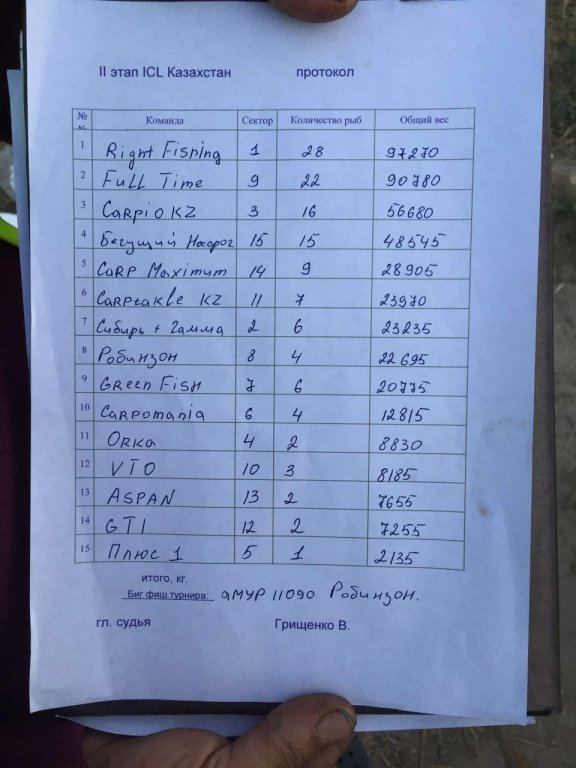 II этап ICL Казахстан протокол
№ Команда Сектор Количество рыб Общий вес
1 Right Fishing 1 28 97270
2 Full Time 9 22 90780
3 Carpio KZ 3 16 56680
4 Бегущий Носорог 15 15 48545
5 Carp Maximum 14 9 28905
6 Carptakle KZ 11 7 23970
7 Сибирь + Гамма 2 6 23235
8 Робинзон 8 4 22695
9 Green Fish 7 6 20775
10 Carpomania 6 4 12815
11 Orka 4 2 8830
12 VTO 10 3 8185
13 ASPAN 13 2 7655
14 GTI 12 2 7255
15 Плюс 1 5 1 2135
итого, кг.
Биг фиш турнира: амур 11090 Робинзон.
гл. судья Грищенко В.